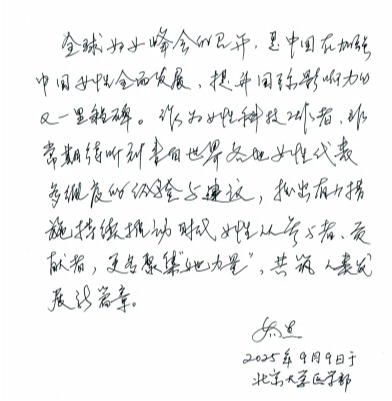 全球妇女峰会的召开,是中国在加强
中国女性全面发展,提升国际影响力的
又一里程碑。作为女性科技工作者,非
常期待听到来自世界各地女性代表
多维度的经验与建议,拟出有力措
施持续推动时代女性从参与者、贡
献者,更多聚集“她力量”,共筑人类发
展新篇章。
2025年9月9日于
北京大学医学部